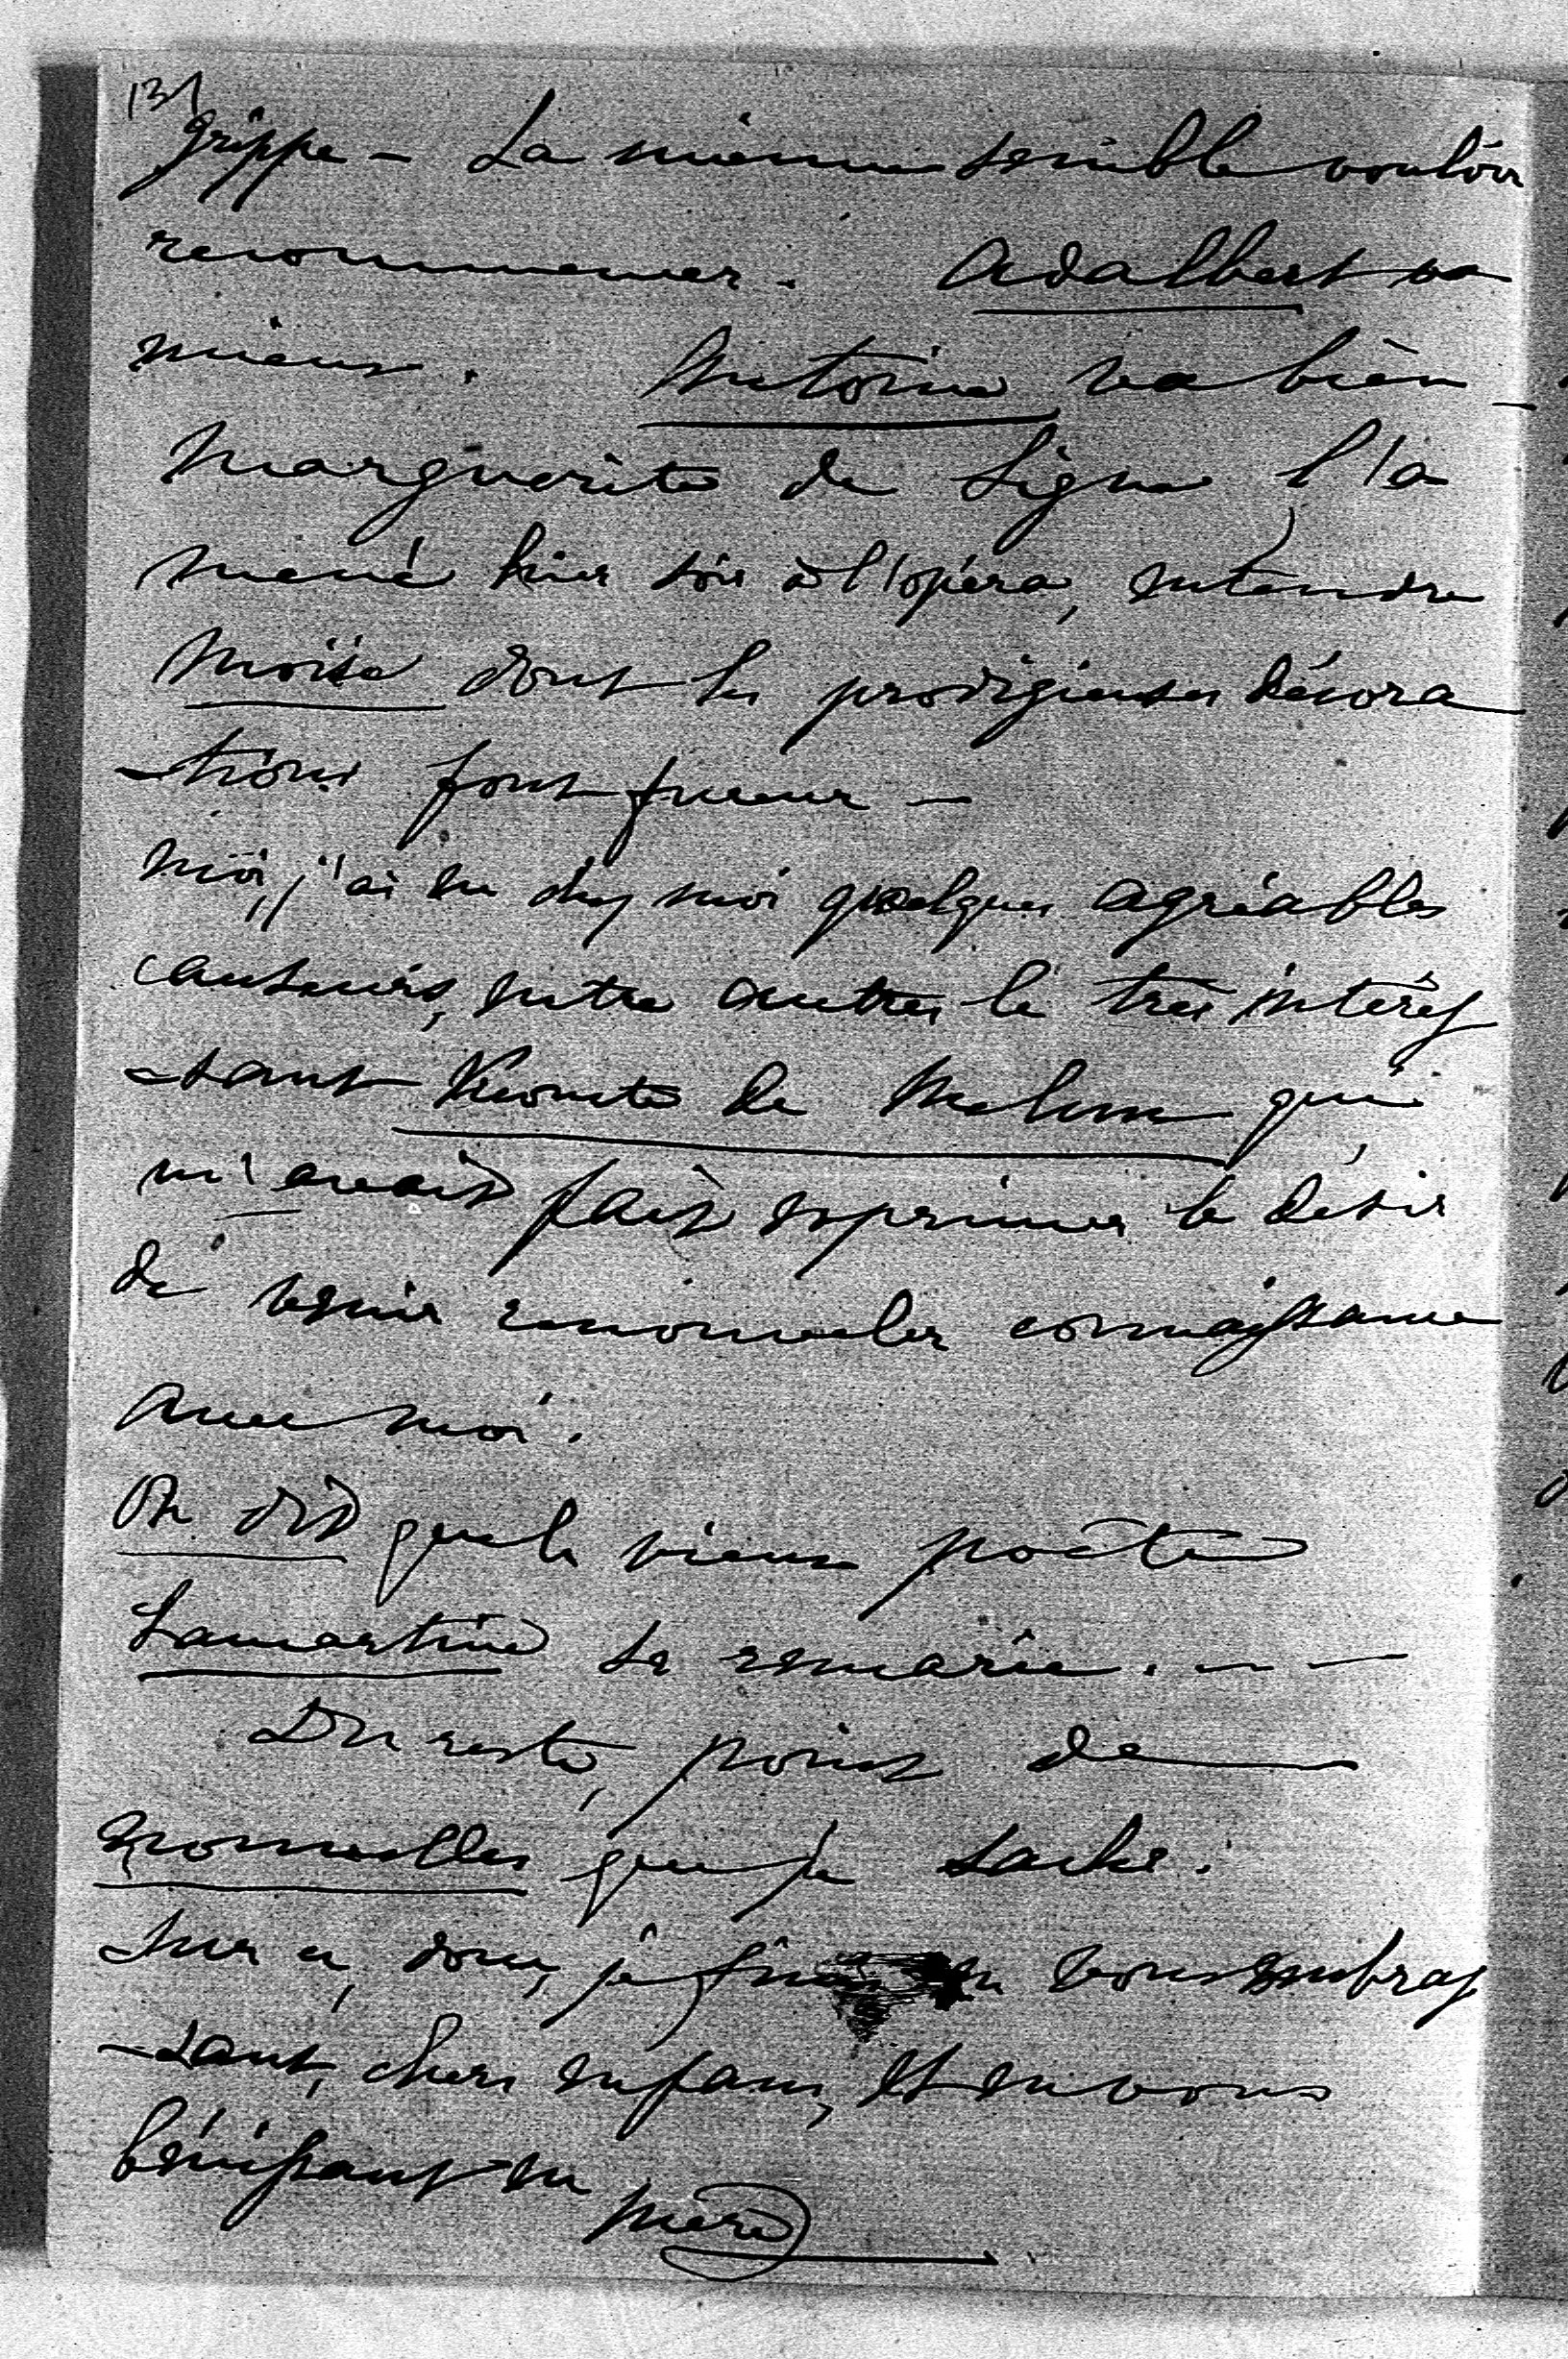 131
grippe – La mienne semble vouloir
recommencer. Adalbert va
mieux. Antoine va bien –
Marguerite de Ligne l'a
mené hier soir à l'opéra, entendre
Moïse dont les prodigieuses décora
-tions font fureur –
Moi, j'ai eu chez moi quelques agréables
causeurs, entre autres le très intéres
-sant Vicomte de Melun qui
m'avait fait exprimer le désir
de venir renouveler connaissance
avec moi.
On dit que le vieux poëte
Lamartine se remarie. – – –
Du reste, point de
nouvelles que je sache.
Sur ce, donc, je finis en vous embras
-sant, chers enfans, et en vous
bénissant en mère